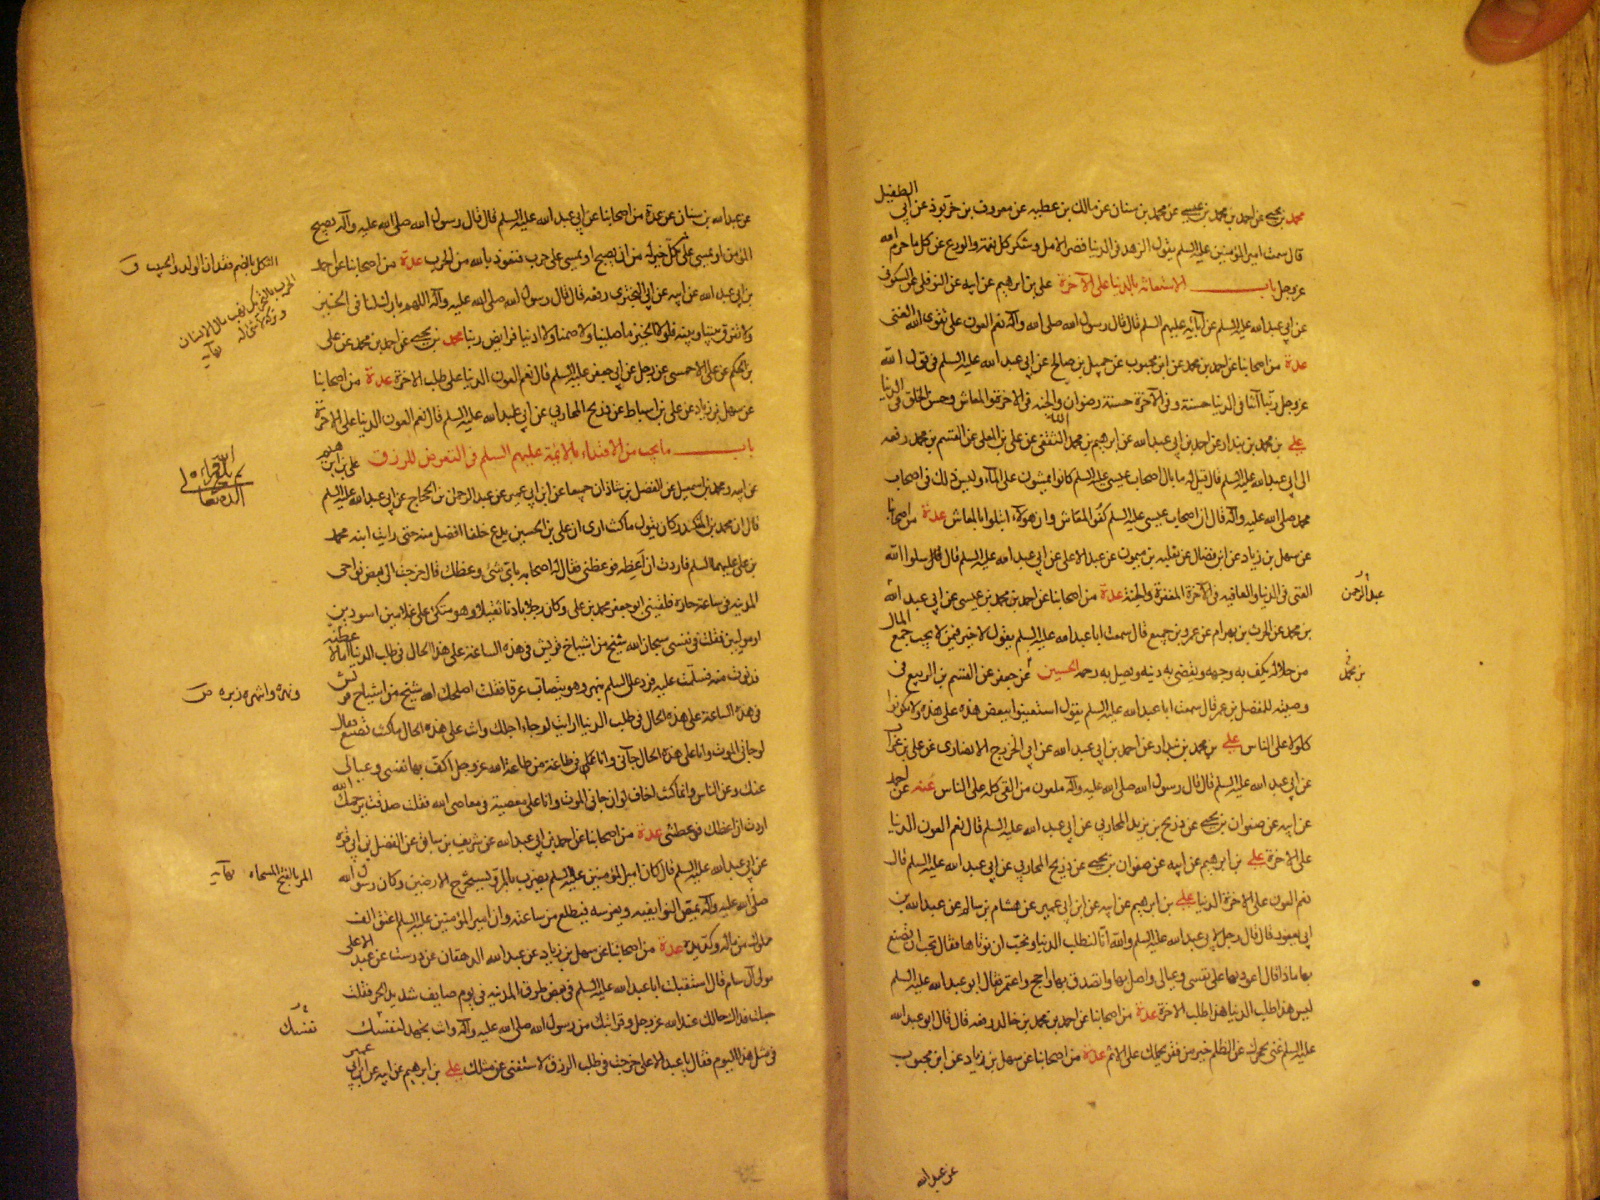 محمد بن يحيى عن احمد بن محمد بن عيسى عن محمد بن سنان عن مالك بن عطيه عن معروف بن خربوذ عن ابى الطفيل
قال سمعت امير المؤمنين عليه السلم يقول الزهد فى الدنيا قصر الامل وشكر كل نعمة والورع عن كل ما حرم الله
عز وجل باب الاستعانة بالدنيا على الآخرة على بن ابرهيم عن ابيه عن النوفلى عن السكونى
عن ابى عبد الله عليه السلم عن آبائه عليهم السلم قال قال رسول الله صلى الله عليه وآله نعم العون على تقوى الله الغنى
عدة من اصحابنا عن احمد بن محمد عن ابن محبوب عن جميل بن صالح عن ابى عبد الله عليه السلم فى قول الله
عز وجل ربنا آتنا فى الدنيا حسنة وفى الآخرة حسنة رضوان الله والجنة فى الاخرة والمعاش وحسن الخلق فى الدنيا
على بن محمد بن بندار عن احمد بن ابى عبد الله عن ابرهيم بن محمد الثقفى عن على بن المعلى عن القسم بن محمد رفعه
الى ابى عبد الله عليه السلم قال قيل له ما بال اصحاب عيسى عليه السلم كانوا يمشون على الماء وليس ذلك فى اصحاب
محمد صلى الله عليه وآله قال ان اصحاب عيسى عليه السلم كفوا المعاش وان هؤلاء ابتلوا بالمعاش عدة من اصحابنا
عن سهل بن زياد عن ابن فضال عن ثعلبه بن ميمون عن عبد الاعلى عن ابى عبد الله عليه السلم قال قال سلوا الله
الغنى فى الدنيا والعافيه وفى الآخرة المغفرة والجنة عدة من اصحابنا عن احمد بن محمد بن عيسى عن ابى عبد الله
عبد الرحمن
بن محمد عن الحرث بن بهرام عن عمرو بن جميع قال سمعت ابا عبد الله عليه السلم يقول لا خير فيمن لا يحب جمع المال
من حلال يكف به وجهه ويقضى به دينه ويصل به رحمه الحسين عن جعفر عن القسم بن الربيع فى
بن محمد
وصيته للمفضل بن عمر قال سمعت ابا عبد الله عليه السلم يقول استعينوا ببعض هذه على هذه ولا تكونوا
كلولا على الناس على بن محمد بن بندار عن احمد بن ابى عبد الله عن ابى الخزرج الانصارى عن على بن غراب
عن ابى عبد الله عليه السلم قال قال رسول الله صلى الله عليه وآله ملعون من القى كله على الناس عنه عن احمد
عن ابيه عن صفوان بن يحيى عن ذريح بن يزيد المحاربى عن ابى عبد الله عليه السلم قال نعم العون الدنيا
على الاخرة على بن ابرهيم عن ابيه عن صفوان بن يحيى عن ذريح المحاربى عن ابى عبد الله عليه السلم قال
نعم العون على الاخرة الدنيا على بن ابرهيم عن ابيه عن ابن ابى عمير عن هشام بن سالم عن عبد الله بن
ابى يعفور قال قال رجل لابى عبد الله عليه السلم والله انا لنطلب الدنيا ونحب ان نؤتاها فقال تحب ان تصنع
بها ماذا قال اعود بها على نفسى وعيالى واصل بها واتصدق بها واحج واعتمر فقال ابو عبد الله عليه السلم
ليس هذا طلب الدنيا هذا طلب الاخرة عدة من اصحابنا عن احمد بن محمد بن خالد رفعه قال قال ابو عبد الله
عليه السلم غنى يحجزك عن الظلم خير من فقر يحملك على الاثم عدة من اصحابنا عن سهل بن زياد عن ابن محبوب
عن عبد الله
عن عبد الله بن سنان عن عدة من اصحابنا عن ابى عبد الله عليه السلم قال قال رسول الله صلى الله عليه وآله يصبح
المؤمن او يمسى على ثكل خير له من ان يصبح او يمسى على حرب فنعوذ بالله من الحرب عدة من اصحابنا عن احمد
الثكل بالضم فقدان الولد والحبيب ق
بن ابى عبد الله عن ابيه عن ابى البخترى رفعه قال قال رسول الله صلى الله عليه وآله اللهم بارك لنا فى الخبز
ولا تفرق بيننا وبينه فلولا الخبز ما صلينا ولا صمنا ولا ادينا فرايض ربنا محمد بن يحيى عن احمد بن محمد عن على
بن الحكم عن على الاحمسى عن رجل عن ابى جعفر عليه السلم قال نعم العون الدنيا على طلب الاخرة عدة من اصحابنا
عن سهل بن زياد عن على بن اسباط عن ذريح المحاربى عن ابى عبد الله عليه السلم قال نعم العون الدنيا على الاخرة
باب ما يجب من الاقتداء بالائمة عليهم السلم فى التعرض للرزق على بن ابرهيم
عن ابيه ومحمد بن اسمعيل عن الفضل بن شاذان جميعا عن ابن ابى عمير عن عبد الرحمن بن الحجاج عن ابى عبد الله عليه السلم
قال ان محمد بن المنكدر كان يقول ما كنت ارى ان على بن الحسين يدع خلفا افضل منه حتى رايت ابنه محمد
بن على عليهما السلم فاردت ان اعظه فوعظنى فقال له اصحابه باى شئ وعظك قال خرجت الى بعض نواحى
المدينه فى ساعة حارة فلقينى ابو جعفر محمد بن على وكان رجلا بادنا ثقيلا وهو متكئ على غلامين اسودين
او موليين فقلت فى نفسى سبحان الله شيخ من اشياخ قريش فى هذه الساعة على هذا الحال فى طلب الدنيا اما لاعظنه
فدنوت منه فسلمت عليه فرد على السلم بنهر وهو يتصاب عرقا فقلت اصلحك الله شيخ من اشياخ قريش
فى هذه الساعة على هذه الحال فى طلب الدنيا ارايت لو جاء اجلك وانت على هذه الحال ما كنت تصنع فقال
لو جاءنى الموت وانا على هذه الحال جاءنى وانا فى طاعة من طاعة الله عز وجل اكف بها نفسى وعيالى
عنك وعن الناس وانما كنت اخاف لو ان جاءنى الموت وانا على معصية من معاصى الله فقلت صدقت يرحمك الله
اردت ان اعظك فوعظتنى عدة من اصحابنا عن احمد بن ابى عبد الله عن شريف بن سابق عن الفضل بن ابى قرة
عن ابى عبد الله عليه السلم قال كان امير المؤمنين عليه السلم يضرب بالمر ويستخرج الارضين وكان رسول الله
المر بالفتح المسحاه نهايه
صلى الله عليه وآله يمص النوا بفيه ويغرسه فيطلع من ساعته وان امير المؤمنين عليه السلم اعتق الف
مملوك من ماله وكد يده عدة من اصحابنا عن سهل بن زياد عن عبد الله الدهقان عن درست عن عبد الاعلى
مولى آل سام قال استقبلت ابا عبد الله عليه السلم فى بعض طرق المدينه فى يوم صايف شديد الحر فقلت
جعلت فداك حالك عند الله عز وجل وقرابتك من رسول الله صلى الله عليه وآله وانت تجهد لنفسك
نفسك
فى مثل هذا اليوم فقال يا عبد الاعلى خرجت فى طلب الرزق لاستغنى عن مثلك على بن ابرهيم عن ابيه عن ابن ابى عمير